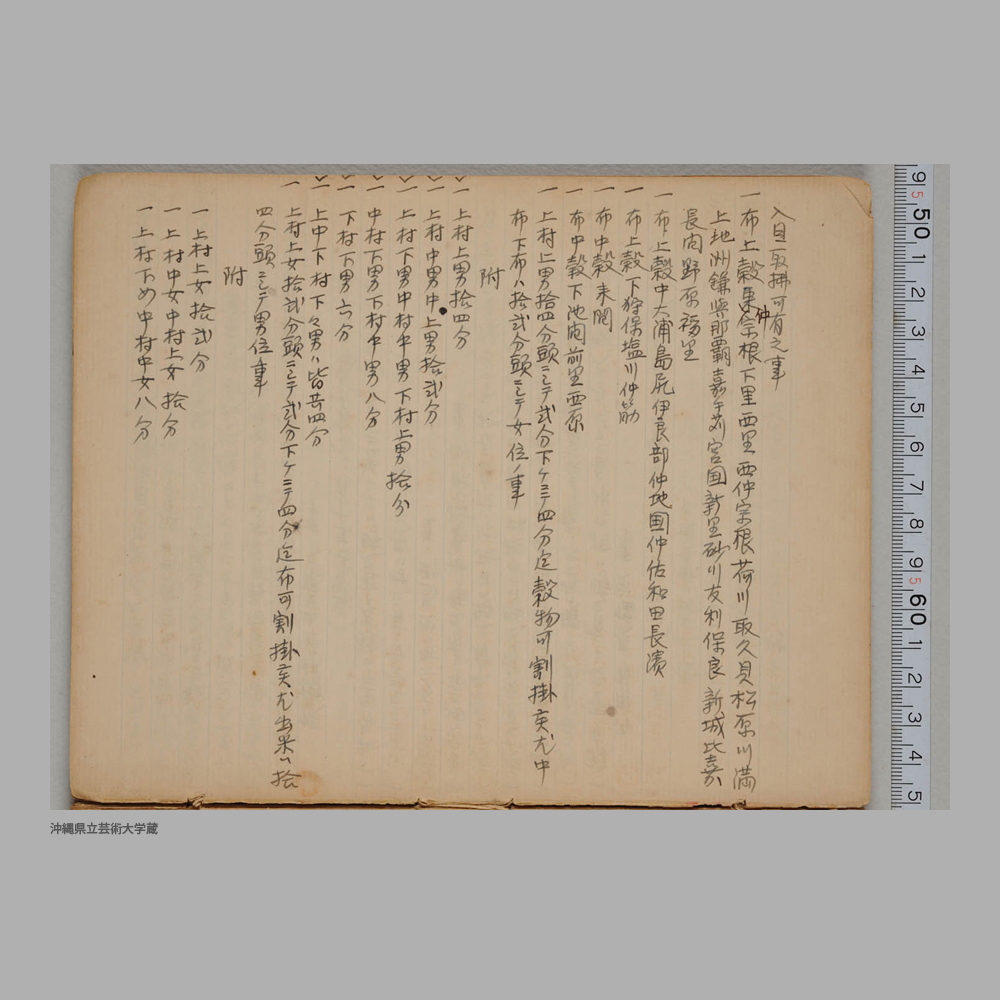 入目取拂可有之事
一 布上穀東仲宗根下里西里西仲宗根荷川取久貝松原川満
上地洲鎌與那覇嘉手苅宮国新里砂川友利保良新城比嘉
長間野原福里
一 布上穀中大浦島尻伊良部仲地国仲佐和田長濱
一 布上穀下狩俣塩川仲筋
一 布中穀来間
一 布中穀下池間前里西原
一 上村上男拾四分頭ニシテ弐分下ケニテ四分迄穀物可割掛亥尤中
布下布ハ拾弐分頭ニシテ女位ノ事
附
一 上村上男拾四分
一 上村中男中上男拾弐分
一 上村下男中村中男下村上男拾分
一 中村下男下村中男八分
一 下村下男六分
一 上中下村下々男ハ皆共四分
一 上村上女拾弐分頭ニシテ弐分下ケニテ四分迄布可割掛亥尤出米ハ拾
四分頭ニシテ男位事
附
一 上村上女拾弐分
一 上村中女中村上女拾分
一 上村下女中村中女八分
9 50 1 2 3 4 5 6 7 8 9 60 1 2 3 4 5
沖縄県立芸術大学蔵